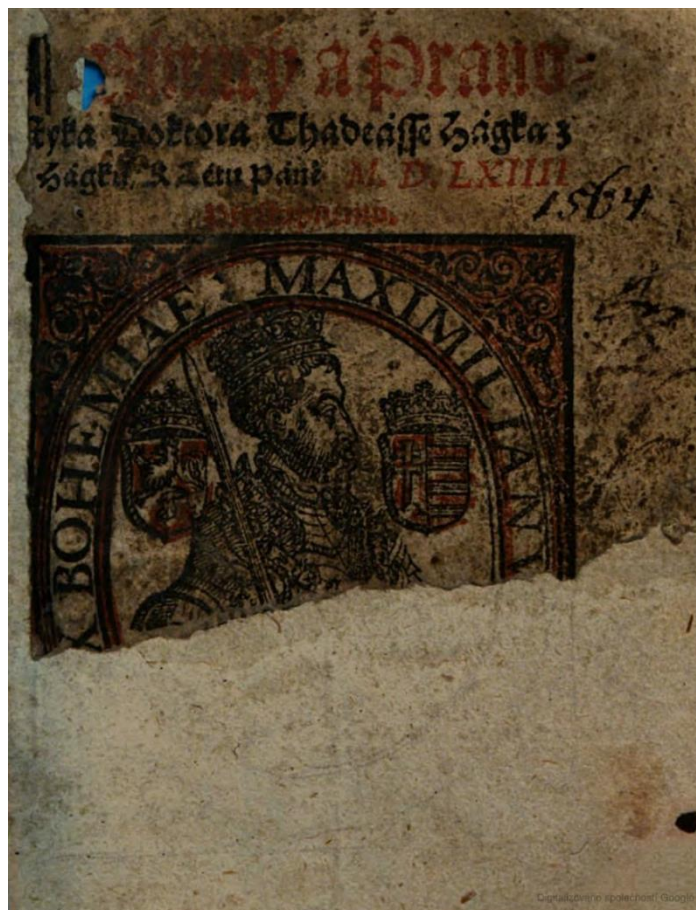 Minucy a Prano=
styka Doktora Thadeásse Hágka z
Hágku, K Létu Páně M. D. LXIIII
1564
X BOHEMIAE : MAXIMILIANV
Digitalizováno společností Google